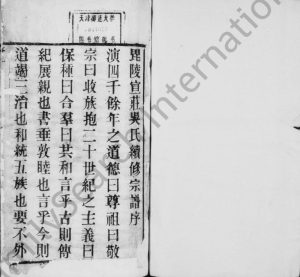 毘陵宣莊吳氏續修宗譜序
演四千餘年之道德曰尊祖曰敬
宗曰收族抱二十世紀之主義曰
保種曰合羣曰共和言乎古則傳
紀展親也書垂敦睦也言乎今則
道謁二治也和統五族也要不外